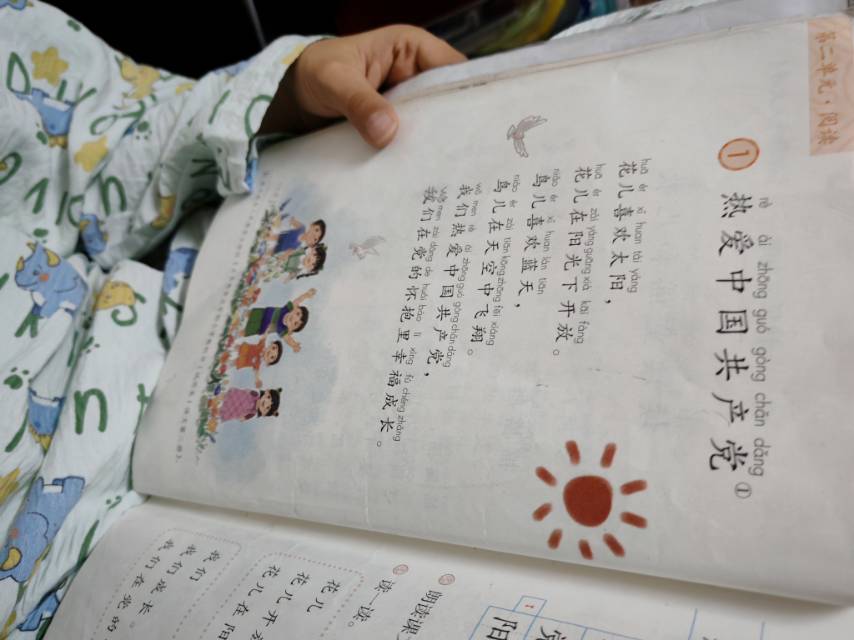 第二单元·阅读
rè ài zhōng guó gòng chǎn dǎng
1 热爱中国共产党①
huā ér xǐ huan tài yáng
花儿喜欢太阳，
huā ér zài yáng guāng xià kāi fàng
花儿在阳光下开放。
niǎo ér xǐ huan lán tiān
鸟儿喜欢蓝天，
niǎo ér zài tiān kōng zhōng fēi xiáng
鸟儿在天空中飞翔。
wǒ men rè ài zhōng guó gòng chǎn dǎng
我们热爱中国共产党，
wǒ men zài dǎng de huái bào lǐ xìng fú chéng zhǎng
我们在党的怀抱里幸福成长。
阳
朗读课
读一读。
花儿
花儿开
花儿在阳
我们
我们成长。
我们在党的